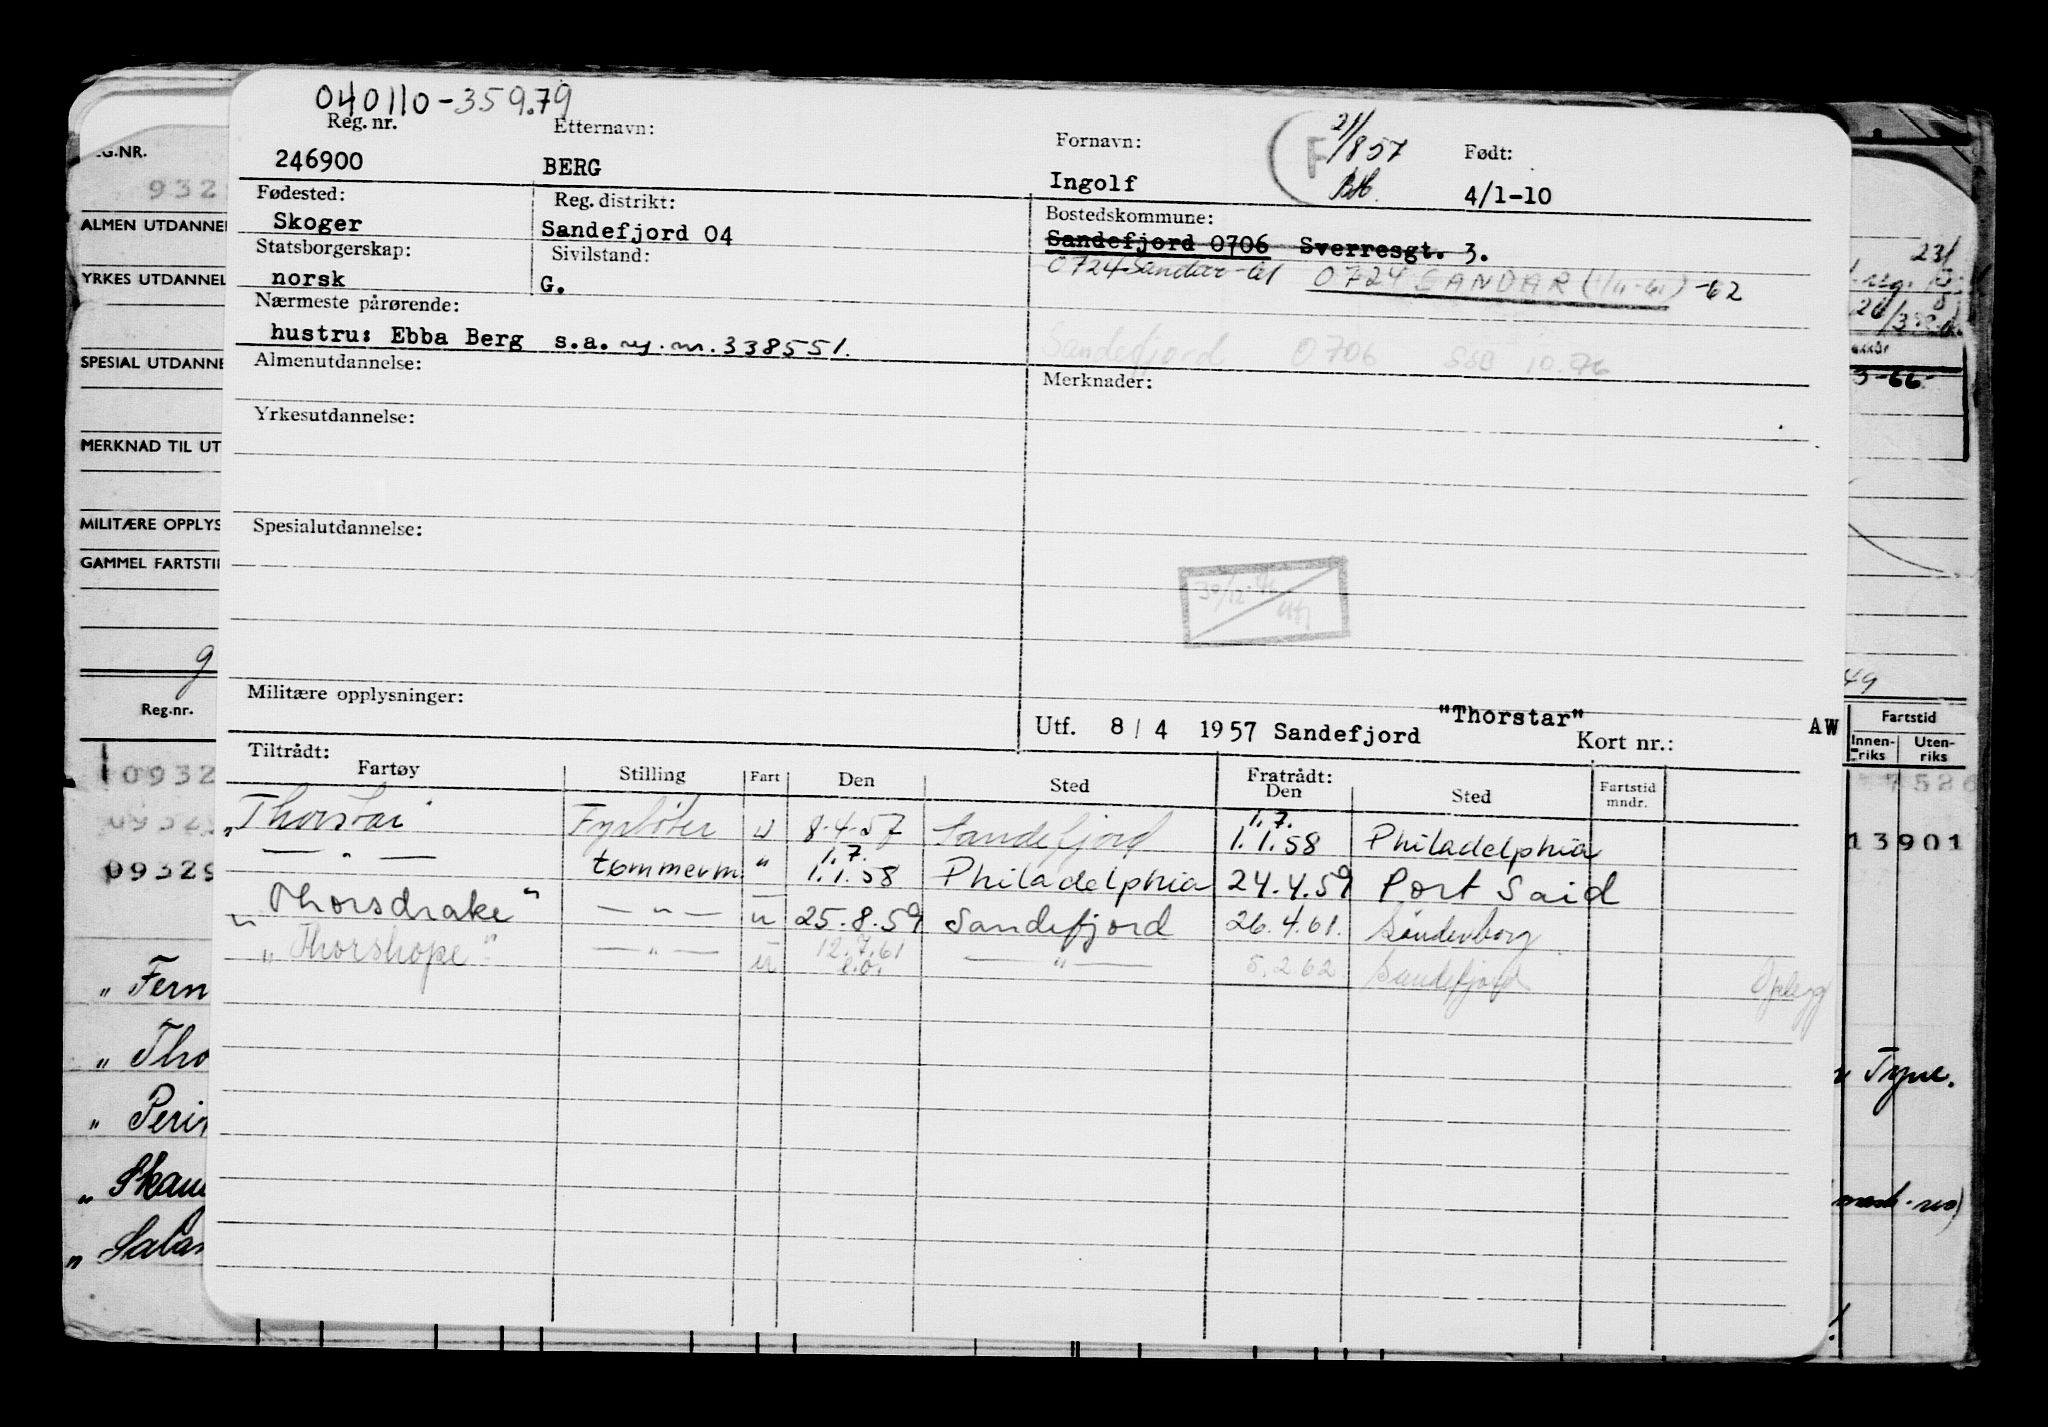 040110-359.79
Reg. nr. Etternavn: Fornavn: Født:
246900 BERG Ingolf 4/1-10
F 21/857
Fødested: Reg. distrikt: Bostedskommune:
Skoger Sandefjord 04 Sandefjord 0706 Sverresgt. 3.
Statsborgerskap: Sivilstand: 0724 Sandar-61 0724 SANDAR (1/11-61) -62
norsk G.
Nærmeste pårørende:
hustru: Ebba Berg s.a. reg. nr. 338551.
Sandefjord 0706 SSB 10.76
Almenutdannelse: Merknader:
Yrkesutdannelse:
Spesialutdannelse:
30/12
Militære opplysninger:
Utf. 8/4 1957 Sandefjord "Thorstar" AW
Kort nr.:
Tiltrådt: Fratrådt:
Fartøy Stilling Fart Den Sted Den Sted Fartstid mndr.
"Thorstar Fyrbøter u 8.4.57 Sandefjord 1.7. 1.1.58 Philadelphia
— " — tømmerm. " 1.7. 1.1.58 Philadelphia 24.4.59 Port Said
"Thorsdrake" — " — u 25.8.59 Sandefjord 26.4.61. Sønderborg
"Thorshope" — " — u 12.7.61 — " — 5.2.62 Sandefjord Opplegg
G.NR.
932
ALMEN UTDANNE
YRKES UTDANNEL
SPESIAL UTDANNE
MERKNAD TIL UT
MILITÆRE OPPLYS
GAMMEL FARTSTI
9
Reg.nr.
0932
0932
09329
" Fern
" Tho
" Perin
" Skau
231
26/3
3-66-
49
Fartstid
Innen-riks Uten-riks
13901
Tyne.